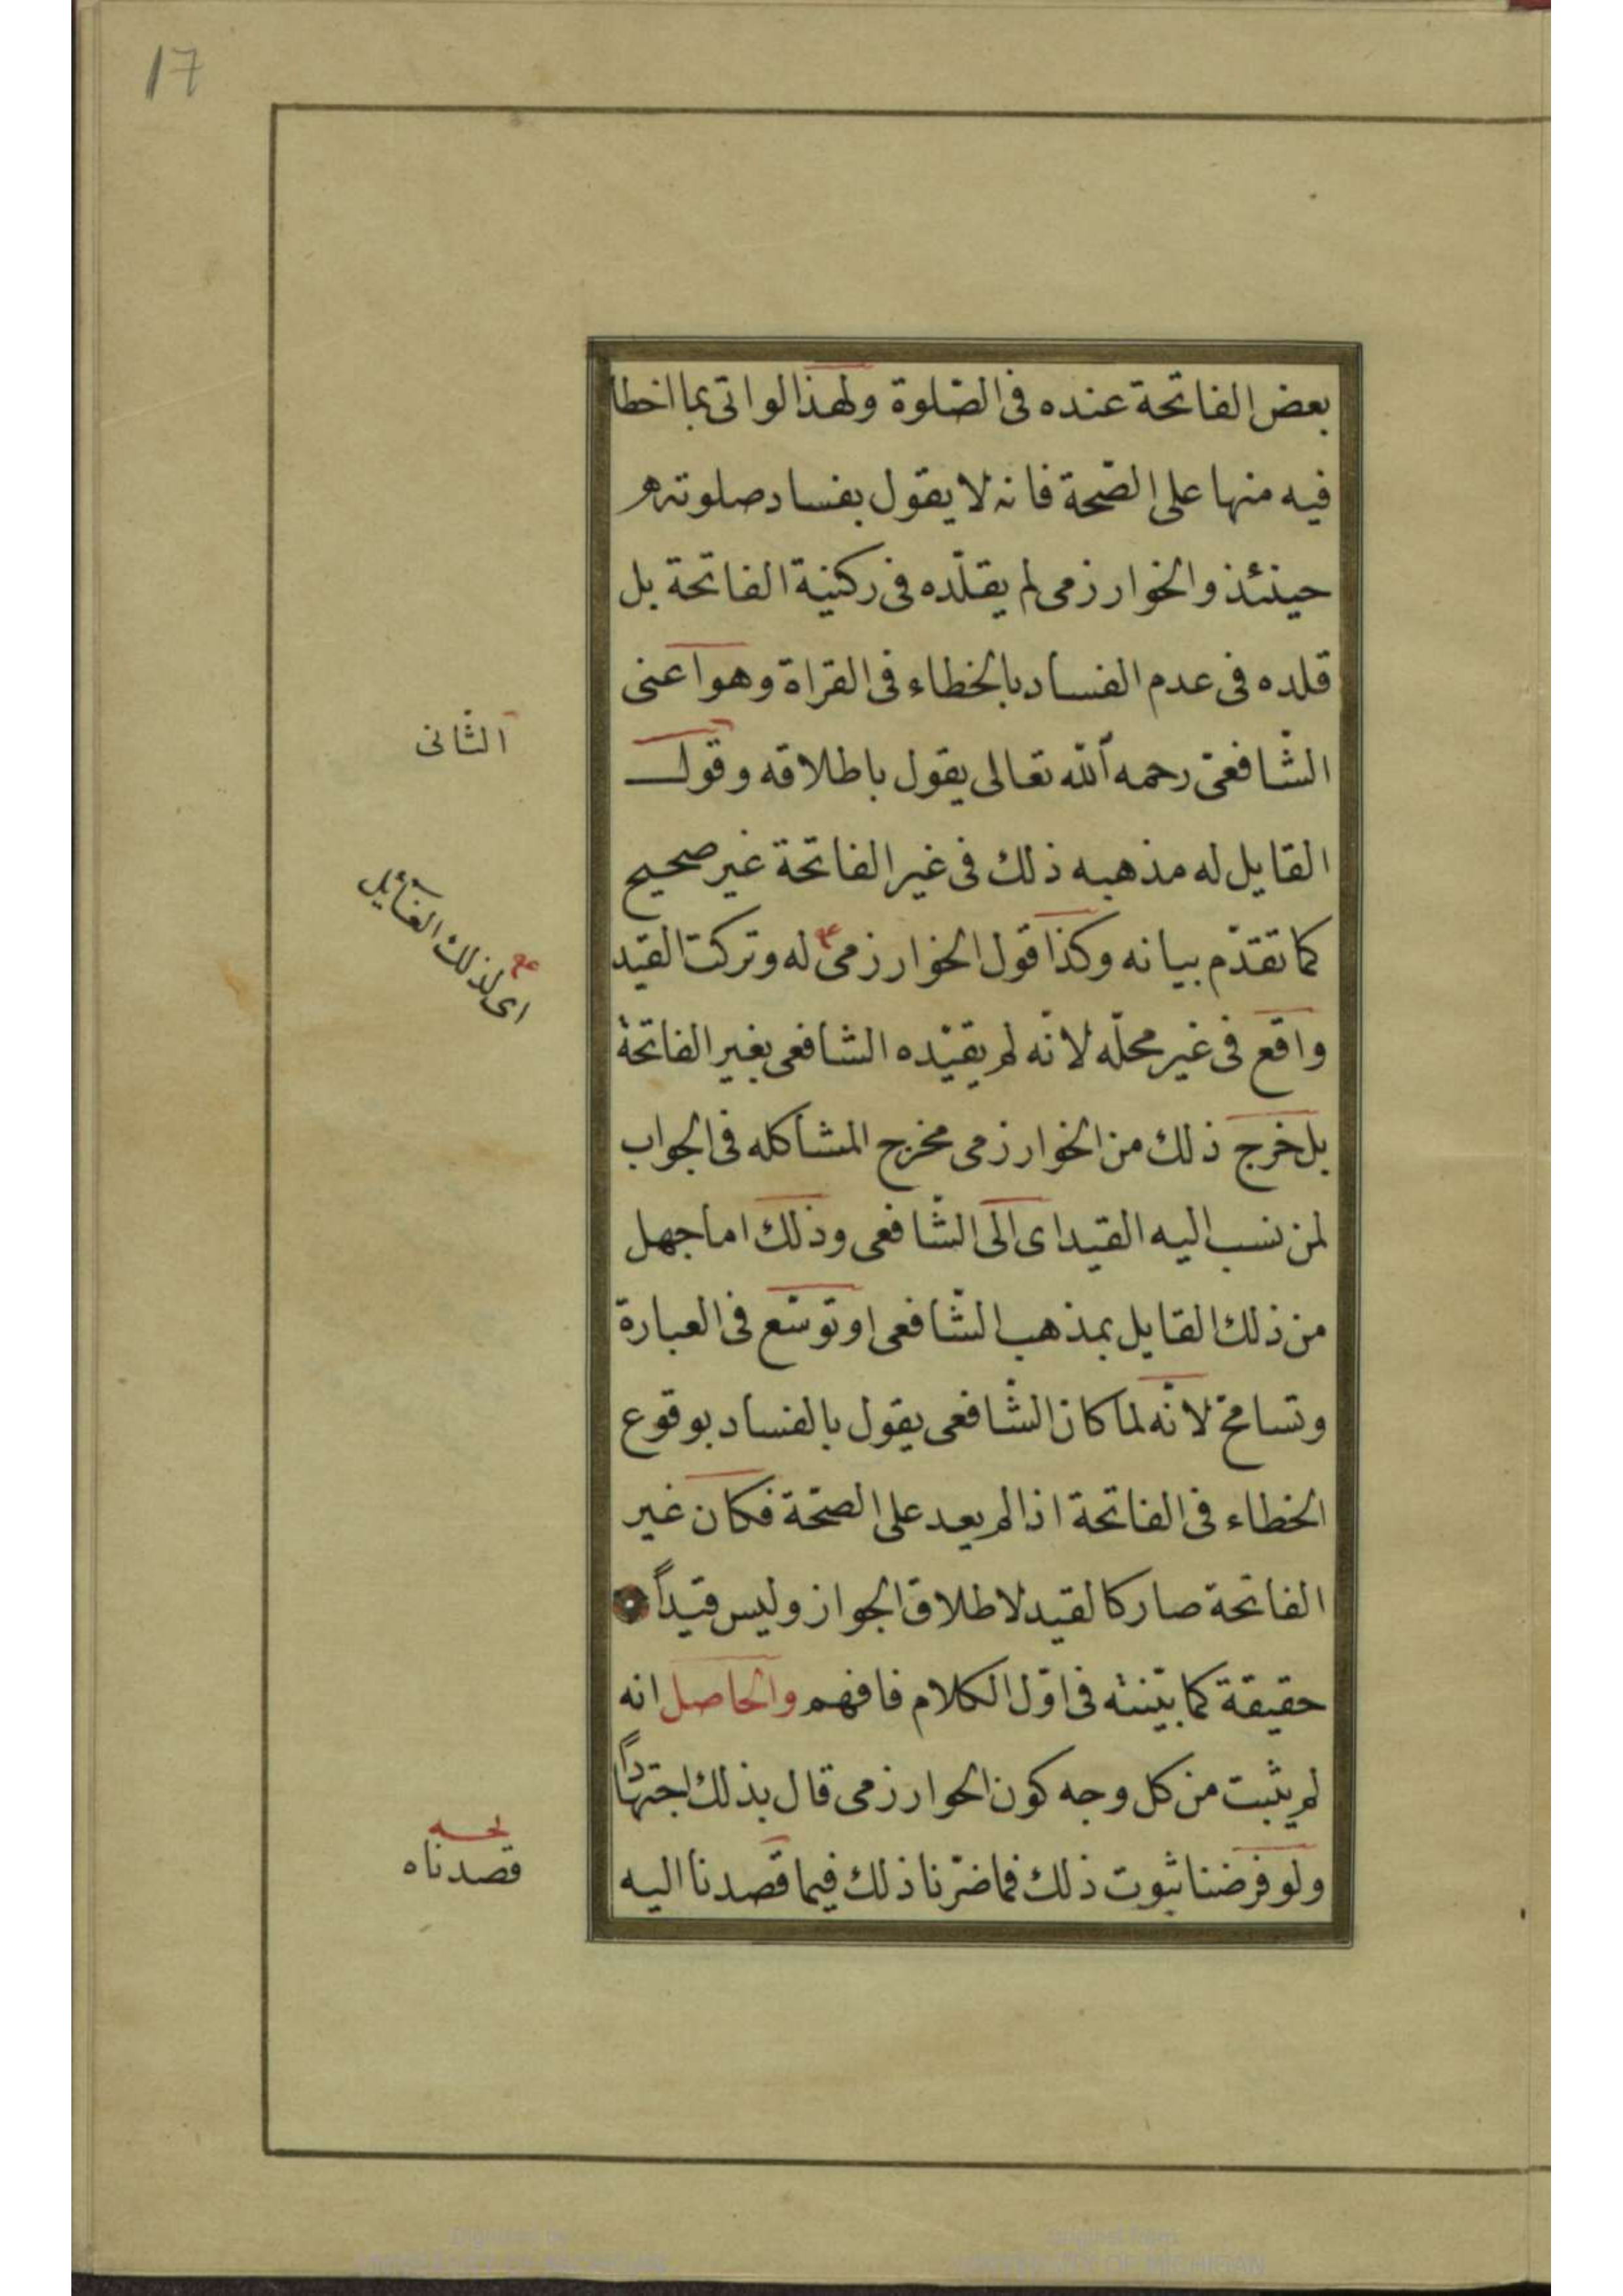 17
بعض الفاتحة عنده فى الصّلوة ولهذا لو اتى بما اخطا
فيه منها على الصّحة فانه لا يقول بفساد صلوته
حينئذ والخوارزمى لم يقلّده فى ركنية الفاتحة بل
قلده فى عدم الفساد بالخطاء فى القراة وهو اعنى
الشّافعىّ رحمه الله تعالى يقول باطلاقه وقول
الثّانى
القايل له مذهبه ذلك فى غير الفاتحة غير صحيح
كما تقدّم بيانه وكذا قول الخوارزمى له وتركت القيد
اى لذلك القآئل
واقع فى غير محلّه لانّه لم يقيّده الشافعى بغير الفاتحة
بل خرج ذلك من الخوارزمى مخرج المشاكله فى الجواب
لمن نسب اليه القيد اى الى الشّافعى وذلك اما جهل
من ذلك القايل بمذهب الشّافعى او توسّع فى العبارة
وتسامح لانّه لما كان الشّافعى يقول بالفساد بوقوع
الخطاء فى الفاتحة اذا لم يعد على الصّحّة فكان غير
الفاتحة صار كالقيد لاطلاق الجواز وليس قيداً
حقيقة كما بيّنته فى اوّل الكلام فافهم والحاصل انه
لم يثبت من كل وجه كون الخوارزمى قال بذلك اجتهاداً
ولو فرضنا ثبوت ذلك فما ضرّنا ذلك فيما قصدنا اليه
قصدناه
UNIVERSITY OF MICHIGAN